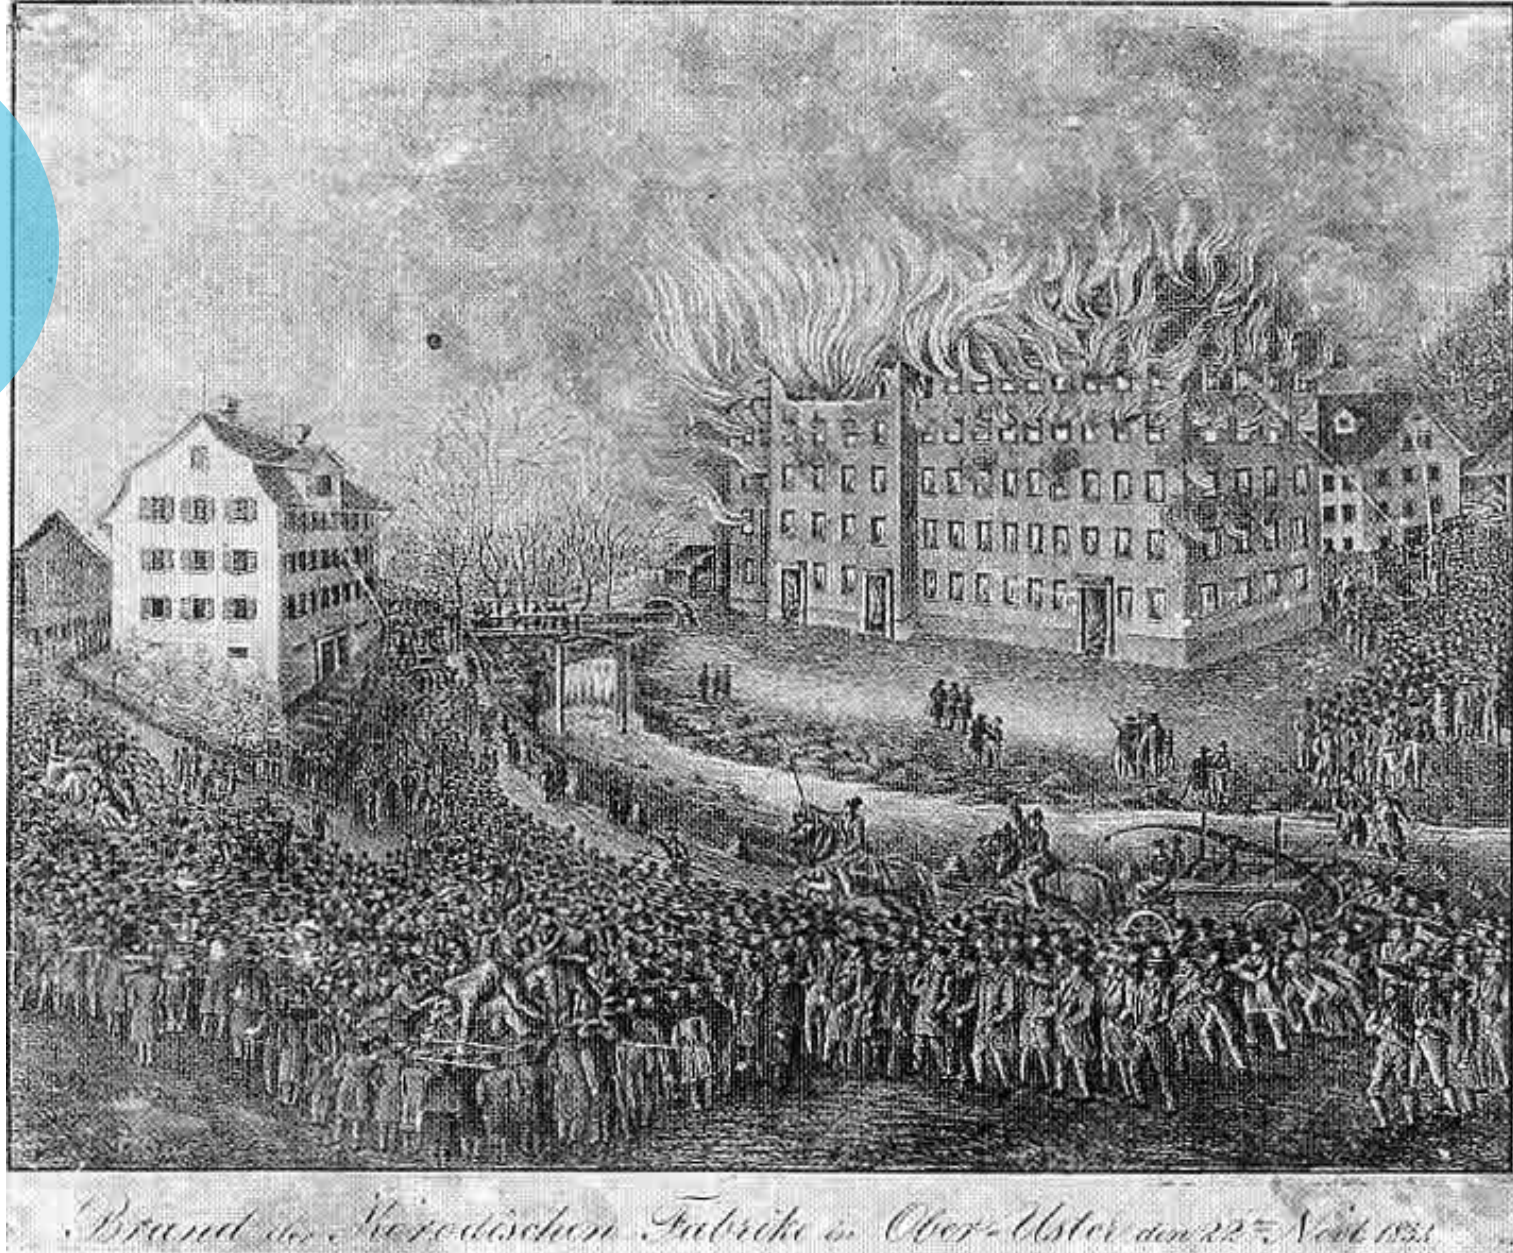 Brand der Korodischen Fabrike in Ober-Uster den 22ten Novb. 1832